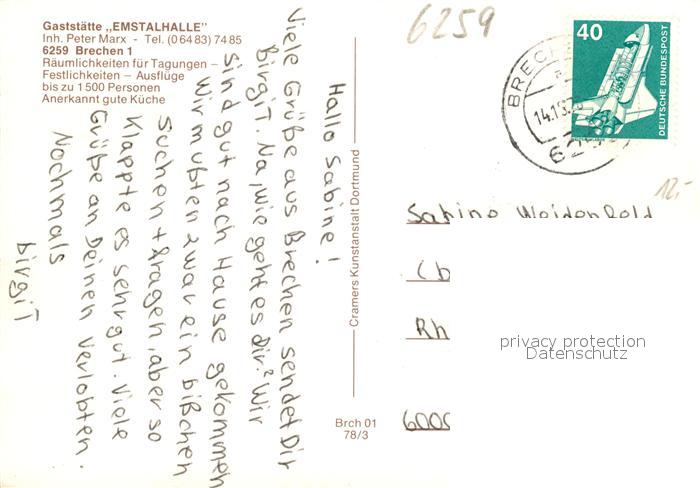 Gaststätte „EMSTALHALLE"
Inh. Peter Marx - Tel. (0 64 83) 74 85
6259 Brechen 1
Räumlichkeiten für Tagungen –
Festlichkeiten – Ausflüge
bis zu 1500 Personen
Anerkannt gute Küche
Hallo Sabine!
Viele Grüße aus Brechen sendet Dir
Birgit. Na, wie geht es Dir? Wir
sind gut nach Hause gekommen
Wir mußten zwar ein bißchen
suchen + fragen, aber so
Klappte es sehr gut. Viele
Grüße an Deinen Verlobten.
Nochmals
Birgit
Cramers Kunstanstalt Dortmund
Brch 01
78/3
6259
40
DEUTSCHE BUNDESPOST
12,-
Sabine
Rh
privacy protection
Datenschutz